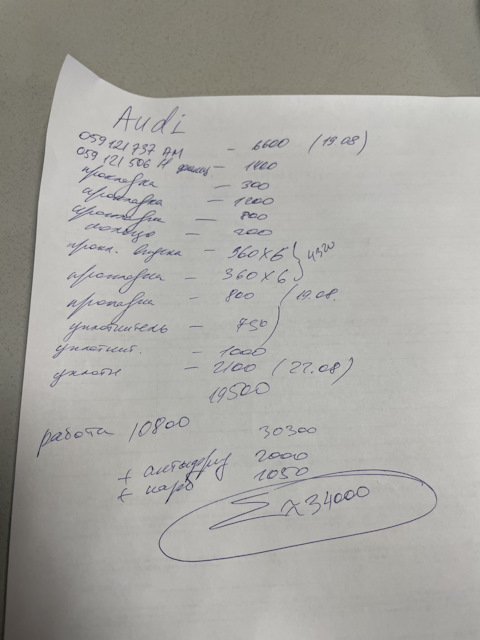 Audi
059121737 AM - 6600 (19.08)
059 121 506 H фланец - 1400
прокладка - 300
прокладка - 1200
прокладка - 800
кольцо - 200
прокл. впуска - 360 x 6 } 4320
прокладка - 360 x 6
прокладка - 800 19.08.
уплотнитель - 750
уплотнит. - 1000
уплотн - 2100 (22.08)
19500
работа 10800
30300
+ антифриз 2000
+ карб 1050
Σ 34000